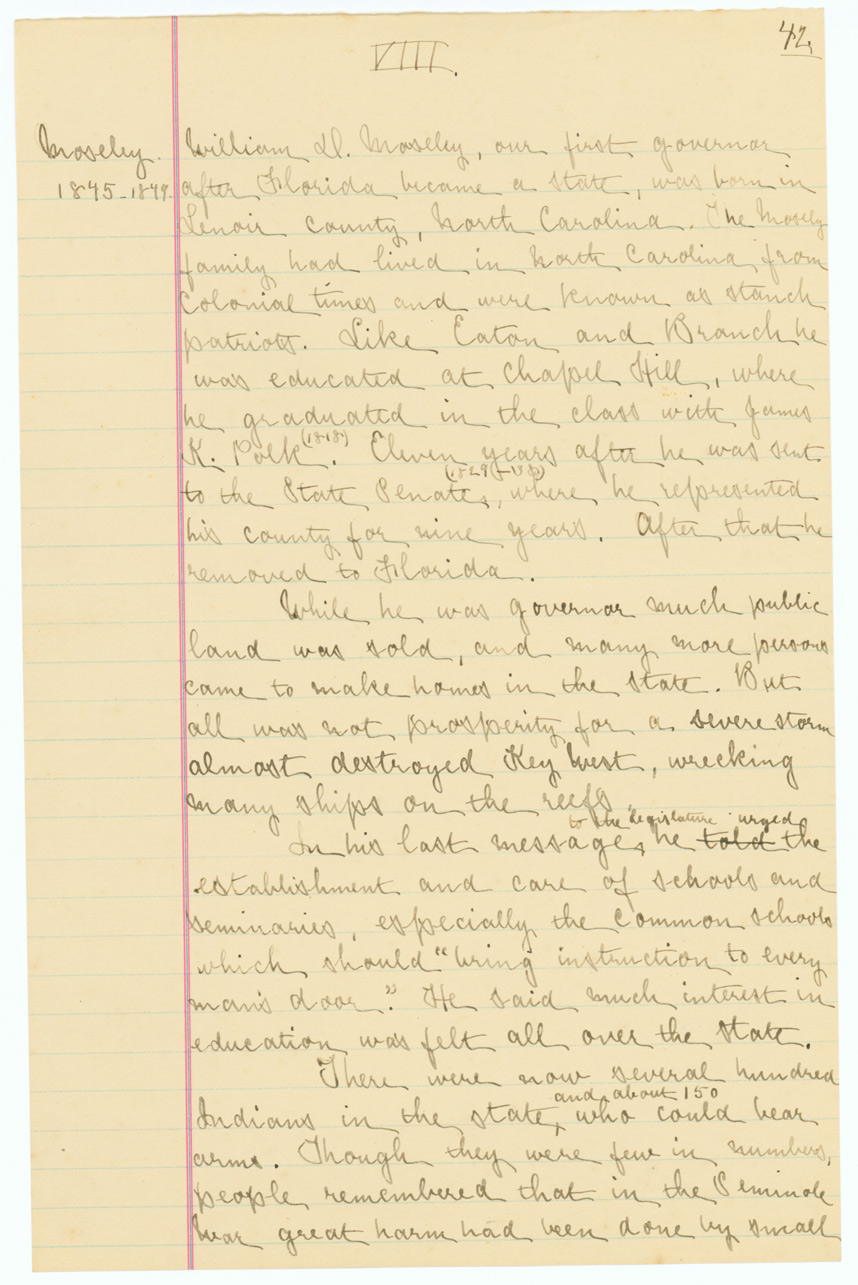 42.
VIII.
Moseley.
1845-1849.
William D. Moseley, our first governor
after Florida became a state, was born in
Lenoir county, North Carolina. The Mosely
family had lived in North Carolina from
colonial times and were known as stanch
patriots. Like Eaton and Branch he
was educated at Chapel Hill, where
he graduated in the class with James
(1818)
K. Polk. Eleven years after he was sent
(1829-'38)
to the State Senate, where he represented
his county for nine years. After that he
removed to Florida.
While he was governor much public
land was sold, and many more persons
came to make homes in the state. But
all was not prosperity for a severe storm
almost destroyed Key West, wrecking
many ships on the reefs.
to the legislature urged
In his last message, he told the
establishment and care of schools and
seminaries, especially the common schools
which should "bring instruction to every
man's door." He said much interest in
education was felt all over the state.
There were now several hundred
and about 150
Indians in the state, who could bear
arms. Though they were few in numbers,
people remembered that in the Seminole
War great harm had been done by small